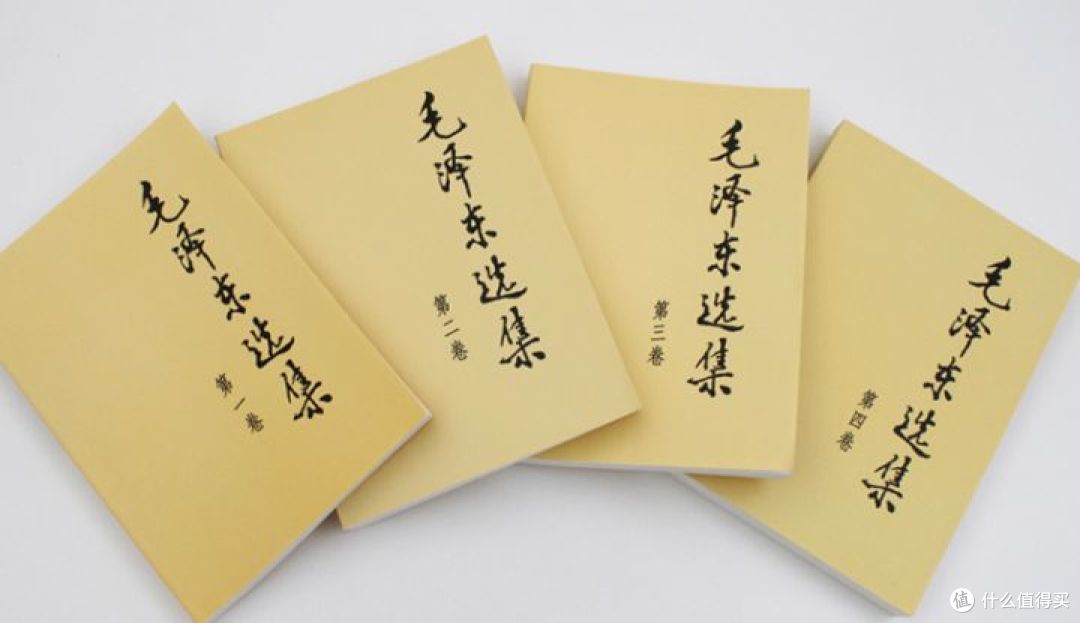 毛泽东选集
第一卷
毛泽东选集
第二卷
毛泽东选集
第三卷
毛泽东选集
第四卷
值 什么值得买